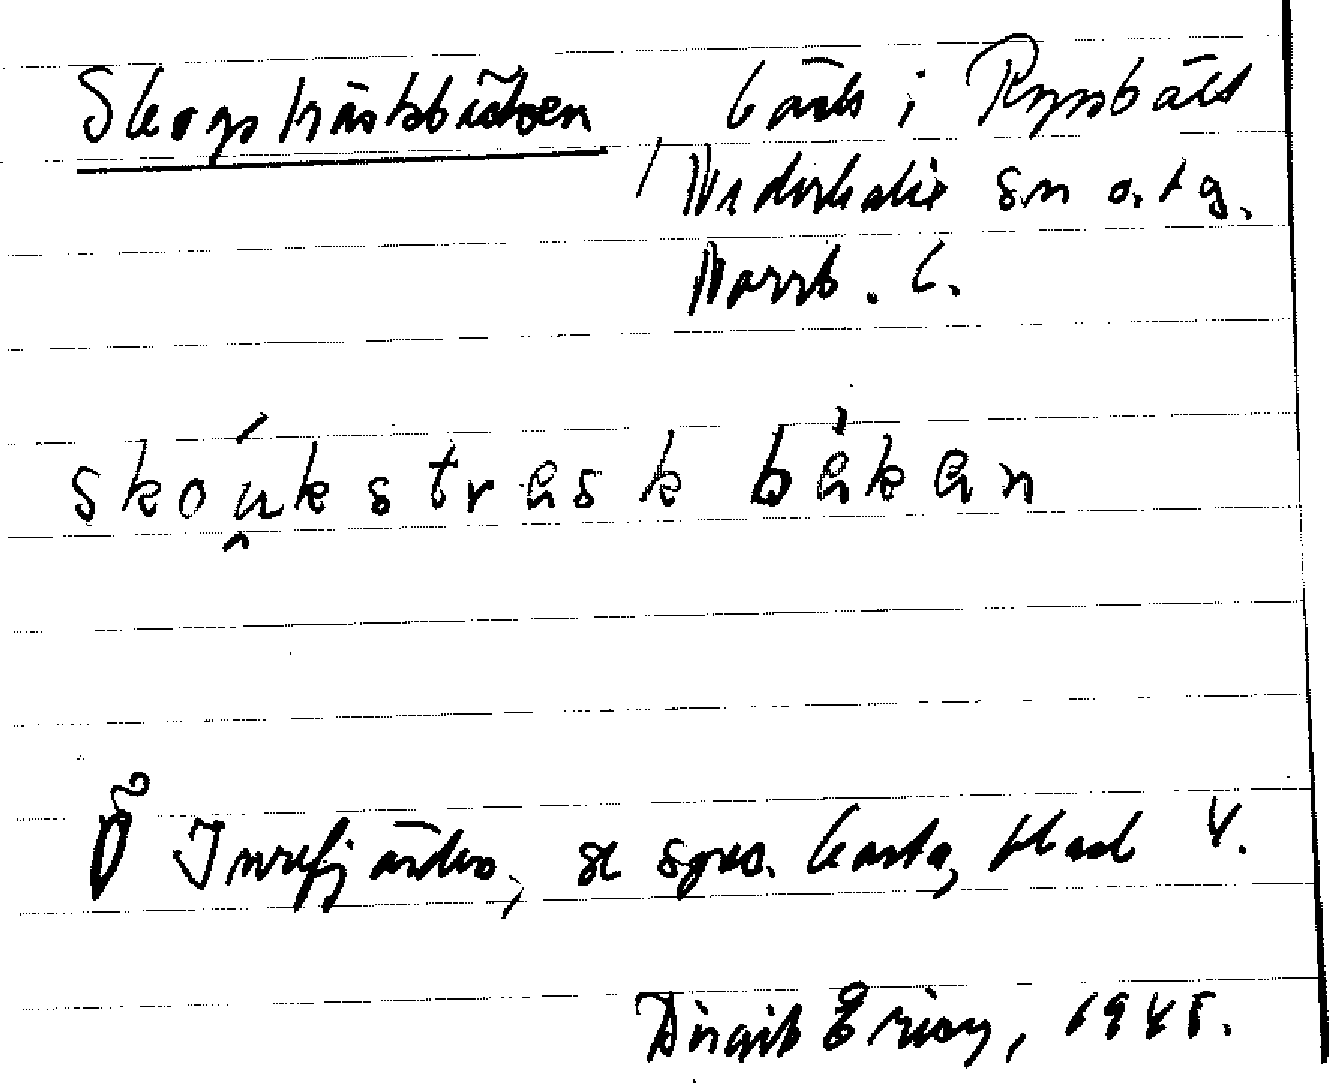 Skogsträskbäcken bäck i Ryssbält
Nederkalix sn o. tg.
Norrb. l.
skou̯kstræsk bækæn
Ö Innrefjärden, se spec. karta, blad V.
Birgit Ericy, 1945.